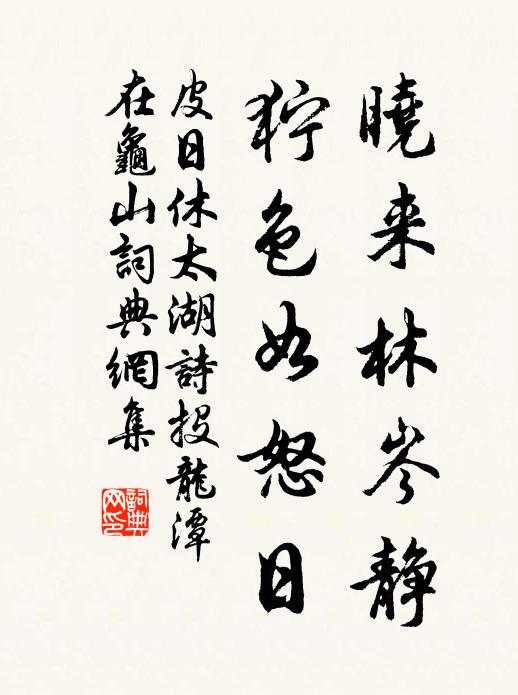 曉来林岑静
狞色如怒日
皮日休太湖詩投龍潭
在龜山詞典網集
詞典网印